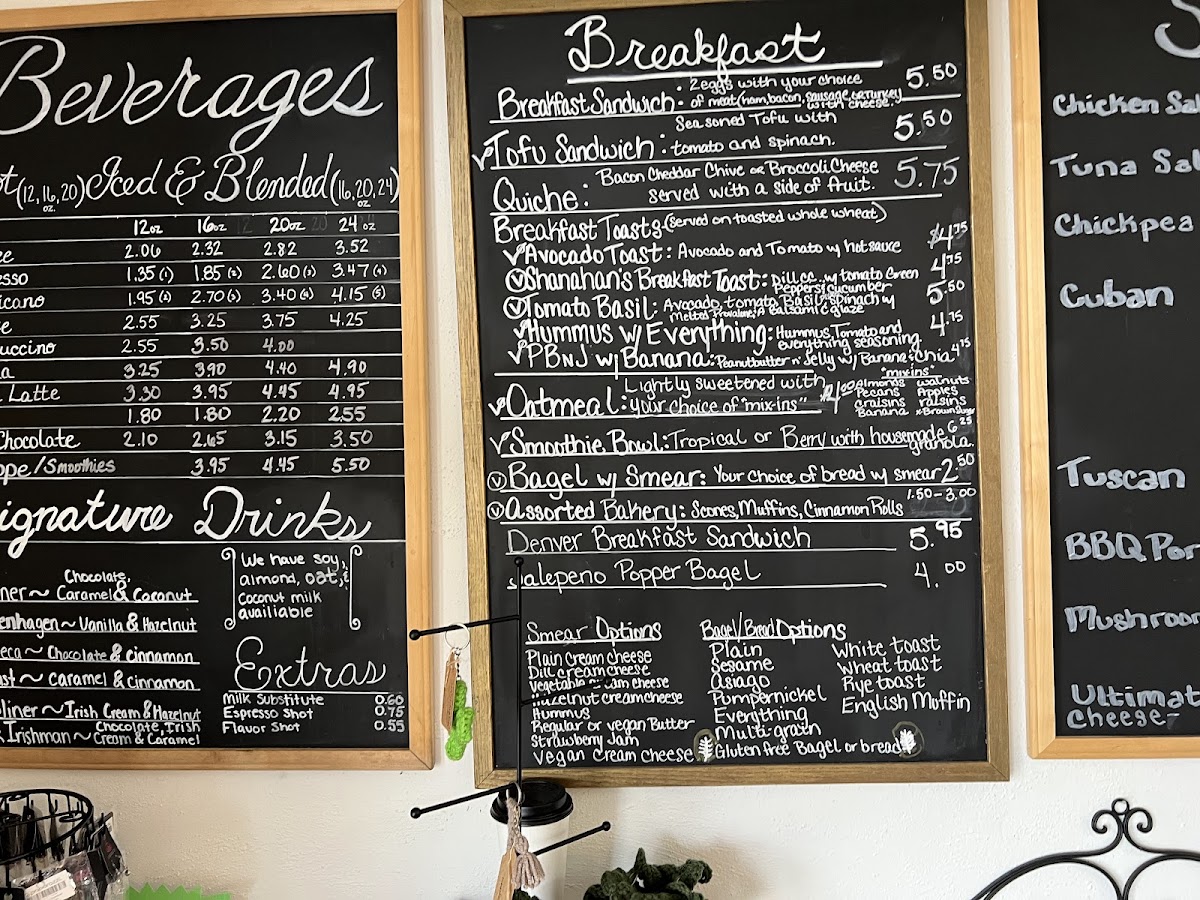 Beverages
(12, 16, 20) Iced & Blended (16, 20, 24)
oz oz
12oz 16oz 20oz 24oz
2.06 2.32 2.82 3.52
1.35 (1) 1.85 (2) 2.60 (3) 3.47 (4)
1.95 (2) 2.70 (3) 3.40 (4) 4.15 (5)
2.55 3.25 3.75 4.25
2.55 3.50 4.00
3.25 3.90 4.40 4.90
Latte 3.30 3.95 4.45 4.95
1.80 1.80 2.20 2.55
Chocolate 2.10 2.65 3.15 3.50
ppe/Smoothies 3.95 4.45 5.50
ignature Drinks
ner~ Chocolate,
Caramel & Coconut
enhagen~Vanilla & Hazelnut
eca~ Chocolate & cinnamon
ast~ Caramel & cinnamon
liner~Irish Cream & Hazelnut
Irishman~ Chocolate, Irish
Cream & Caramel
We have soy,
almond, oat, &
coconut milk
availiable
Extras
Milk Substitute 0.60
Espresso Shot 0.75
Flavor Shot 0.55
Breakfast
Breakfast Sandwich: 2 eggs with your choice 5.50
of meat (ham, bacon, sausage, or turkey
with cheese.
Tofu Sandwich: Seasoned Tofu with 5.50
tomato and spinach.
Quiche: Bacon Cheddar Chive or Broccoli Cheese 5.75
served with a side of fruit.
Breakfast Toasts (served on toasted whole wheat)
Avocado Toast: Avocado and Tomato w/ hot sauce $4.75
Shanahan's Breakfast Toast: Dill cc. w/ tomato Green 4.75
Peppers/cucumber
Tomato Basil: Avocado, tomato, Basil, spinach w/ 5.50
Melted Provalone, & Balsamic glaze
Hummus w/ Everything: Hummus, Tomato and 4.75
everything seasoning
PBnJ w/ Banana: Peanutbutter n' Jelly w/ Banana & Chia 4.75
Oatmeal: Lightly sweetened with $4.00
your choice of "mix-ins"
"mix-ins"
Almonds walnuts
Pecans Apples
craisins raisins
Banana Brown Sugar
Smoothie Bowl: Tropical or Berry with housemade 6.25
granola.
Bagel w/ Smear: Your choice of bread w/ smear 2.50
Assorted Bakery: Scones, Muffins, Cinnamon Rolls 1.50-3.00
Denver Breakfast Sandwich 5.95
Jalepeno Popper Bagel 4.00
Smear Options
Plain Cream cheese
Dill cream cheese
Vegetable cream cheese
Hazelnut creamcheese
Hummus
Regular or vegan Butter
Strawberry Jam
Vegan cream cheese
Bagel/Bread Options
Plain White toast
Sesame Wheat toast
Asiago Rye toast
Pumpernickel English Muffin
Everything
Multi-grain
Gluten free Bagel or bread
S
Chicken Sal
Tuna Sal
Chickpea
Cuban
Tuscan
BBQ Por
Mushroom
Ultimat
cheese-